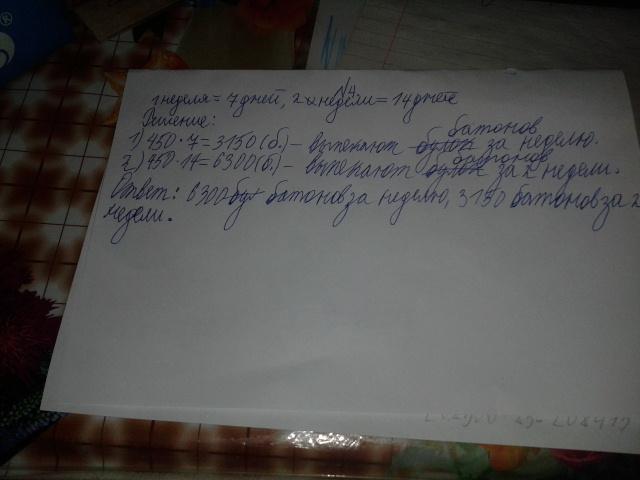 №4
1 неделя = 7 дней, 2 недели = 14 дней
Решение:
1) 450·7=3150(б.) – выпекают батонов за неделю.
2) 450·14=6300(б.) – выпекают батонов за 2 недели.
Ответ: 6300 батонов за неделю, 3150 батонов за 2
недели.